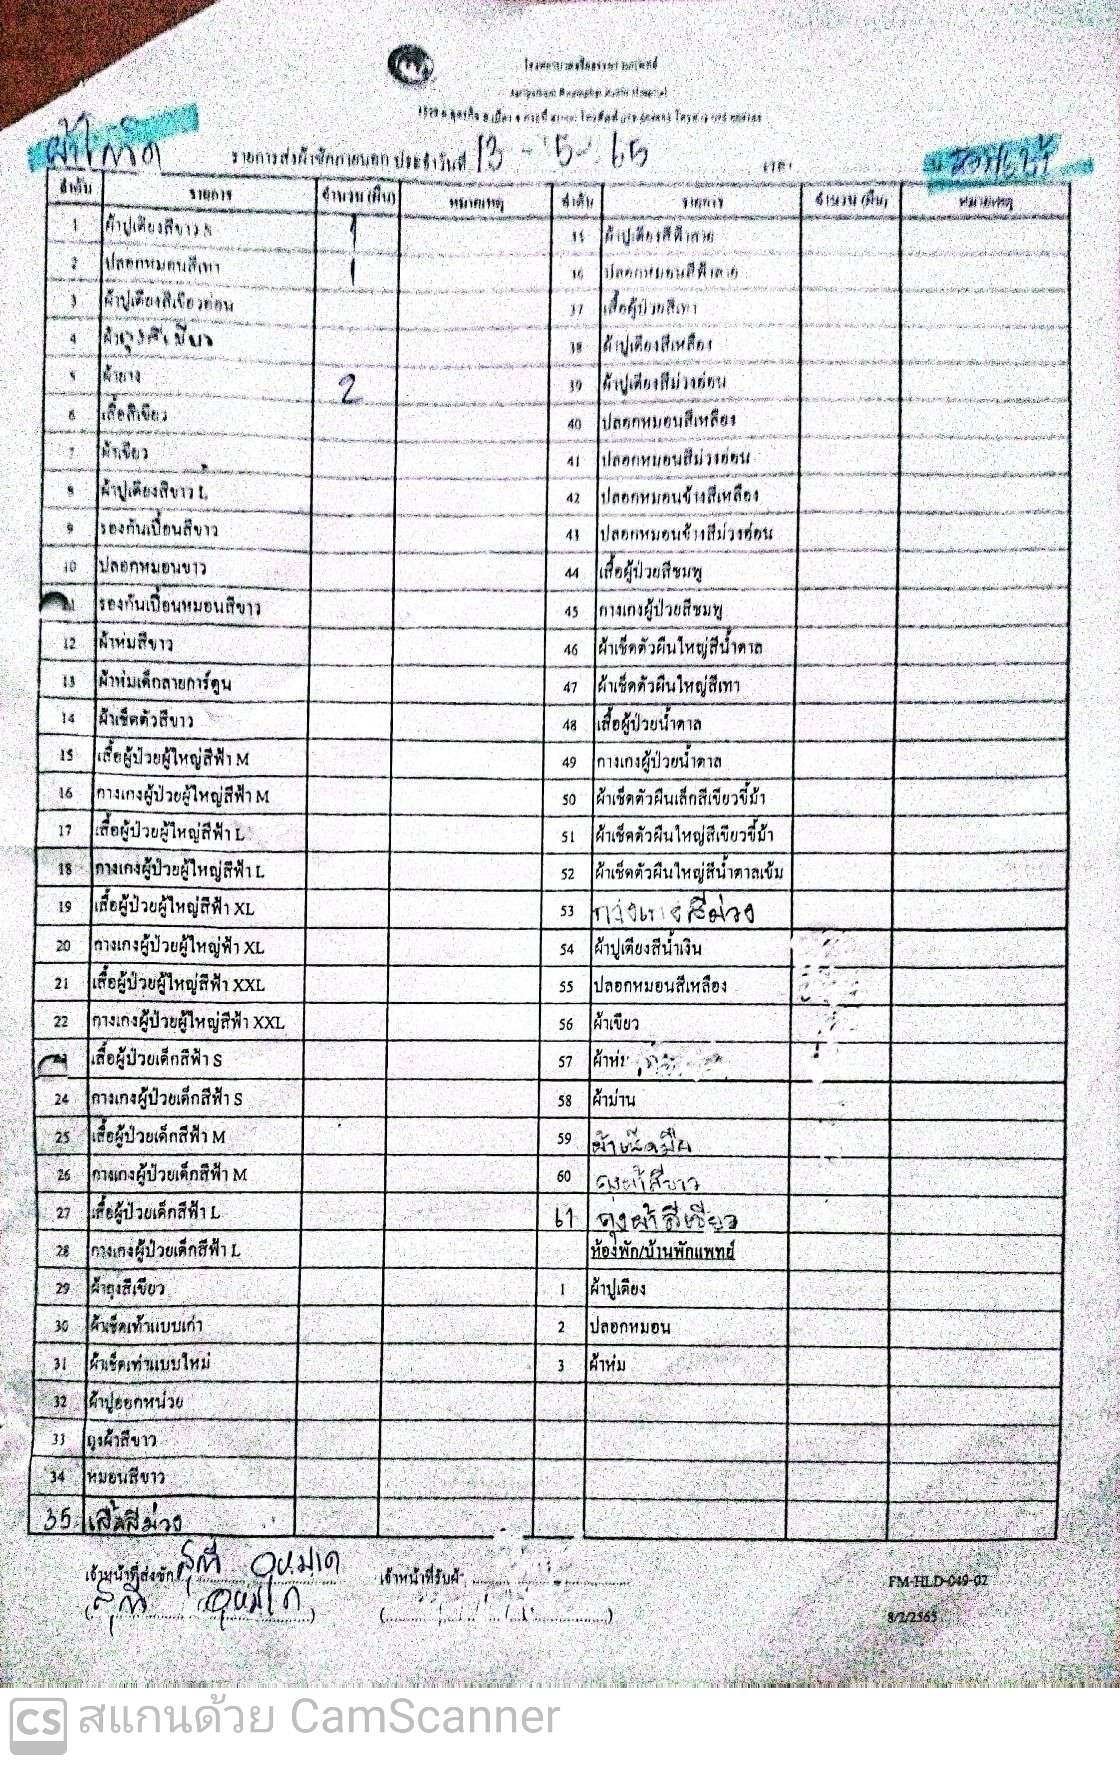 รายการส่งผ้าซักภายนอก ประจำวันที่ 13 - 5 - 65
ลำดับ รายการ จำนวน (ผืน) หมายเหตุ ลำดับ รายการ จำนวน (ผืน) หมายเหตุ
1 ผ้าปูเตียงสีขาว S 1 ผ้าปูเตียงสีฟ้าลาย
2 ปลอกหมอนสีเทา 1 36 ปลอกหมอนสีฟ้าลาย
3 ผ้าปูเตียงสีเขียวอ่อน 37 เสื้อผู้ป่วยสีเทา
4 38 ผ้าปูเตียงสีเหลือง
5 ผ้ายาง 2 39 ผ้าปูเตียงสีม่วงอ่อน
6 เสื้อสีเขียว 40 ปลอกหมอนสีเหลือง
7 ผ้าเขียว 41 ปลอกหมอนสีม่วงอ่อน
8 ผ้าปูเตียงสีขาว L 42 ปลอกหมอนข้างสีเหลือง
9 รองกันเปื้อนสีขาว 43 ปลอกหมอนข้างสีม่วงอ่อน
10 ปลอกหมอนขาว 44 เสื้อผู้ป่วยสีชมพู
รองกันเปื้อนหมอนสีขาว 45 กางเกงผู้ป่วยสีชมพู
12 ผ้าห่มสีขาว 46 ผ้าเช็ดตัวผืนใหญ่สีน้ำตาล
13 ผ้าห่มเด็กลายการ์ตูน 47 ผ้าเช็ดตัวผืนใหญ่สีเทา
14 ผ้าเช็ดตัวสีขาว 48 เสื้อผู้ป่วยน้ำตาล
15 เสื้อผู้ป่วยผู้ใหญ่สีฟ้า M 49 กางเกงผู้ป่วยน้ำตาล
16 กางเกงผู้ป่วยผู้ใหญ่สีฟ้า M 50 ผ้าเช็ดตัวผืนเล็กสีเขียวขี้ม้า
17 เสื้อผู้ป่วยผู้ใหญ่สีฟ้า L 51 ผ้าเช็ดตัวผืนใหญ่สีเขียวขี้ม้า
18 กางเกงผู้ป่วยผู้ใหญ่สีฟ้า L 52 ผ้าเช็ดตัวผืนใหญ่สีน้ำตาลเข้ม
19 เสื้อผู้ป่วยผู้ใหญ่สีฟ้า XL 53 กางเกงสีม่วง
20 กางเกงผู้ป่วยผู้ใหญ่ฟ้า XL 54 ผ้าปูเตียงสีน้ำเงิน
21 เสื้อผู้ป่วยผู้ใหญ่สีฟ้า XXL 55 ปลอกหมอนสีเหลือง
22 กางเกงผู้ป่วยผู้ใหญ่สีฟ้า XXL 56 ผ้าเขียว
เสื้อผู้ป่วยเด็กสีฟ้า S 57
24 กางเกงผู้ป่วยเด็กสีฟ้า S 58 ผ้าม่าน
25 เสื้อผู้ป่วยเด็กสีฟ้า M 59 ผ้าเช็ดมือ
26 กางเกงผู้ป่วยเด็กสีฟ้า M 60 ถุงผ้าสีขาว
27 เสื้อผู้ป่วยเด็กสีฟ้า L 61 ถุงผ้าสีเขียว
28 กางเกงผู้ป่วยเด็กสีฟ้า L ห้องพัก/บ้านพักแพทย์
29 ผ้าถุงสีเขียว 1 ผ้าปูเตียง
30 ผ้าเช็ดเท้าแบบเก่า 2 ปลอกหมอน
31 ผ้าเช็ดเท้าแบบใหม่ 3 ผ้าห่ม
32 ผ้าปูออกหน่วย
33 ถุงผ้าสีขาว
34 หมอนสีขาว
35 เสื้อสีม่วง
เจ้าหน้าที่ส่งซัก เจ้าหน้าที่รับผ้า
FM-HLD-049-02
8/2/2565
CS สแกนด้วย CamScanner